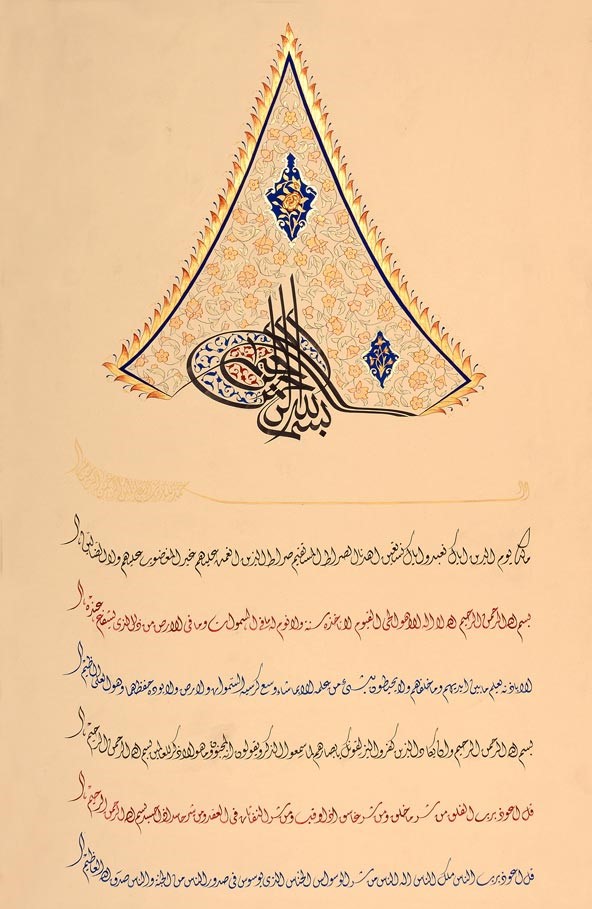 بسم الله الرحمن الرحيم
مالك يوم الدين اياك نعبد واياك نستعين اهدنا الصراط المستقيم صراط الذين انعمت عليهم غير المغضوب عليهم ولا الضالين
بسم الله الرحمن الرحيم الله لا اله الا هو الحي القيوم لا تاخذه سنة ولا نوم له ما في السموات وما في الارض من ذا الذي يشفع عنده
الا باذنه يعلم ما بين ايديهم وما خلفهم ولا يحيطون بشئ من علمه الا بما شاء وسع كرسيه السموات والارض ولا يوده حفظهما وهو العلي العظيم
بسم الله الرحمن الرحيم وان يكاد الذين كفروا ليزلقونك بابصارهم لما سمعوا الذكر ويقولون انه لمجنون وما هو الا ذكر للعالمين بسم الله الرحمن الرحيم
قل اعوذ برب الفلق من شر ما خلق ومن شر غاسق اذا وقب ومن شر النفاثات في العقد ومن شر حاسد اذا حسد بسم الله الرحمن الرحيم
قل اعوذ برب الناس ملك الناس اله الناس من شر الوسواس الخناس الذي يوسوس في صدور الناس من الجنة والناس صدق الله العظيم